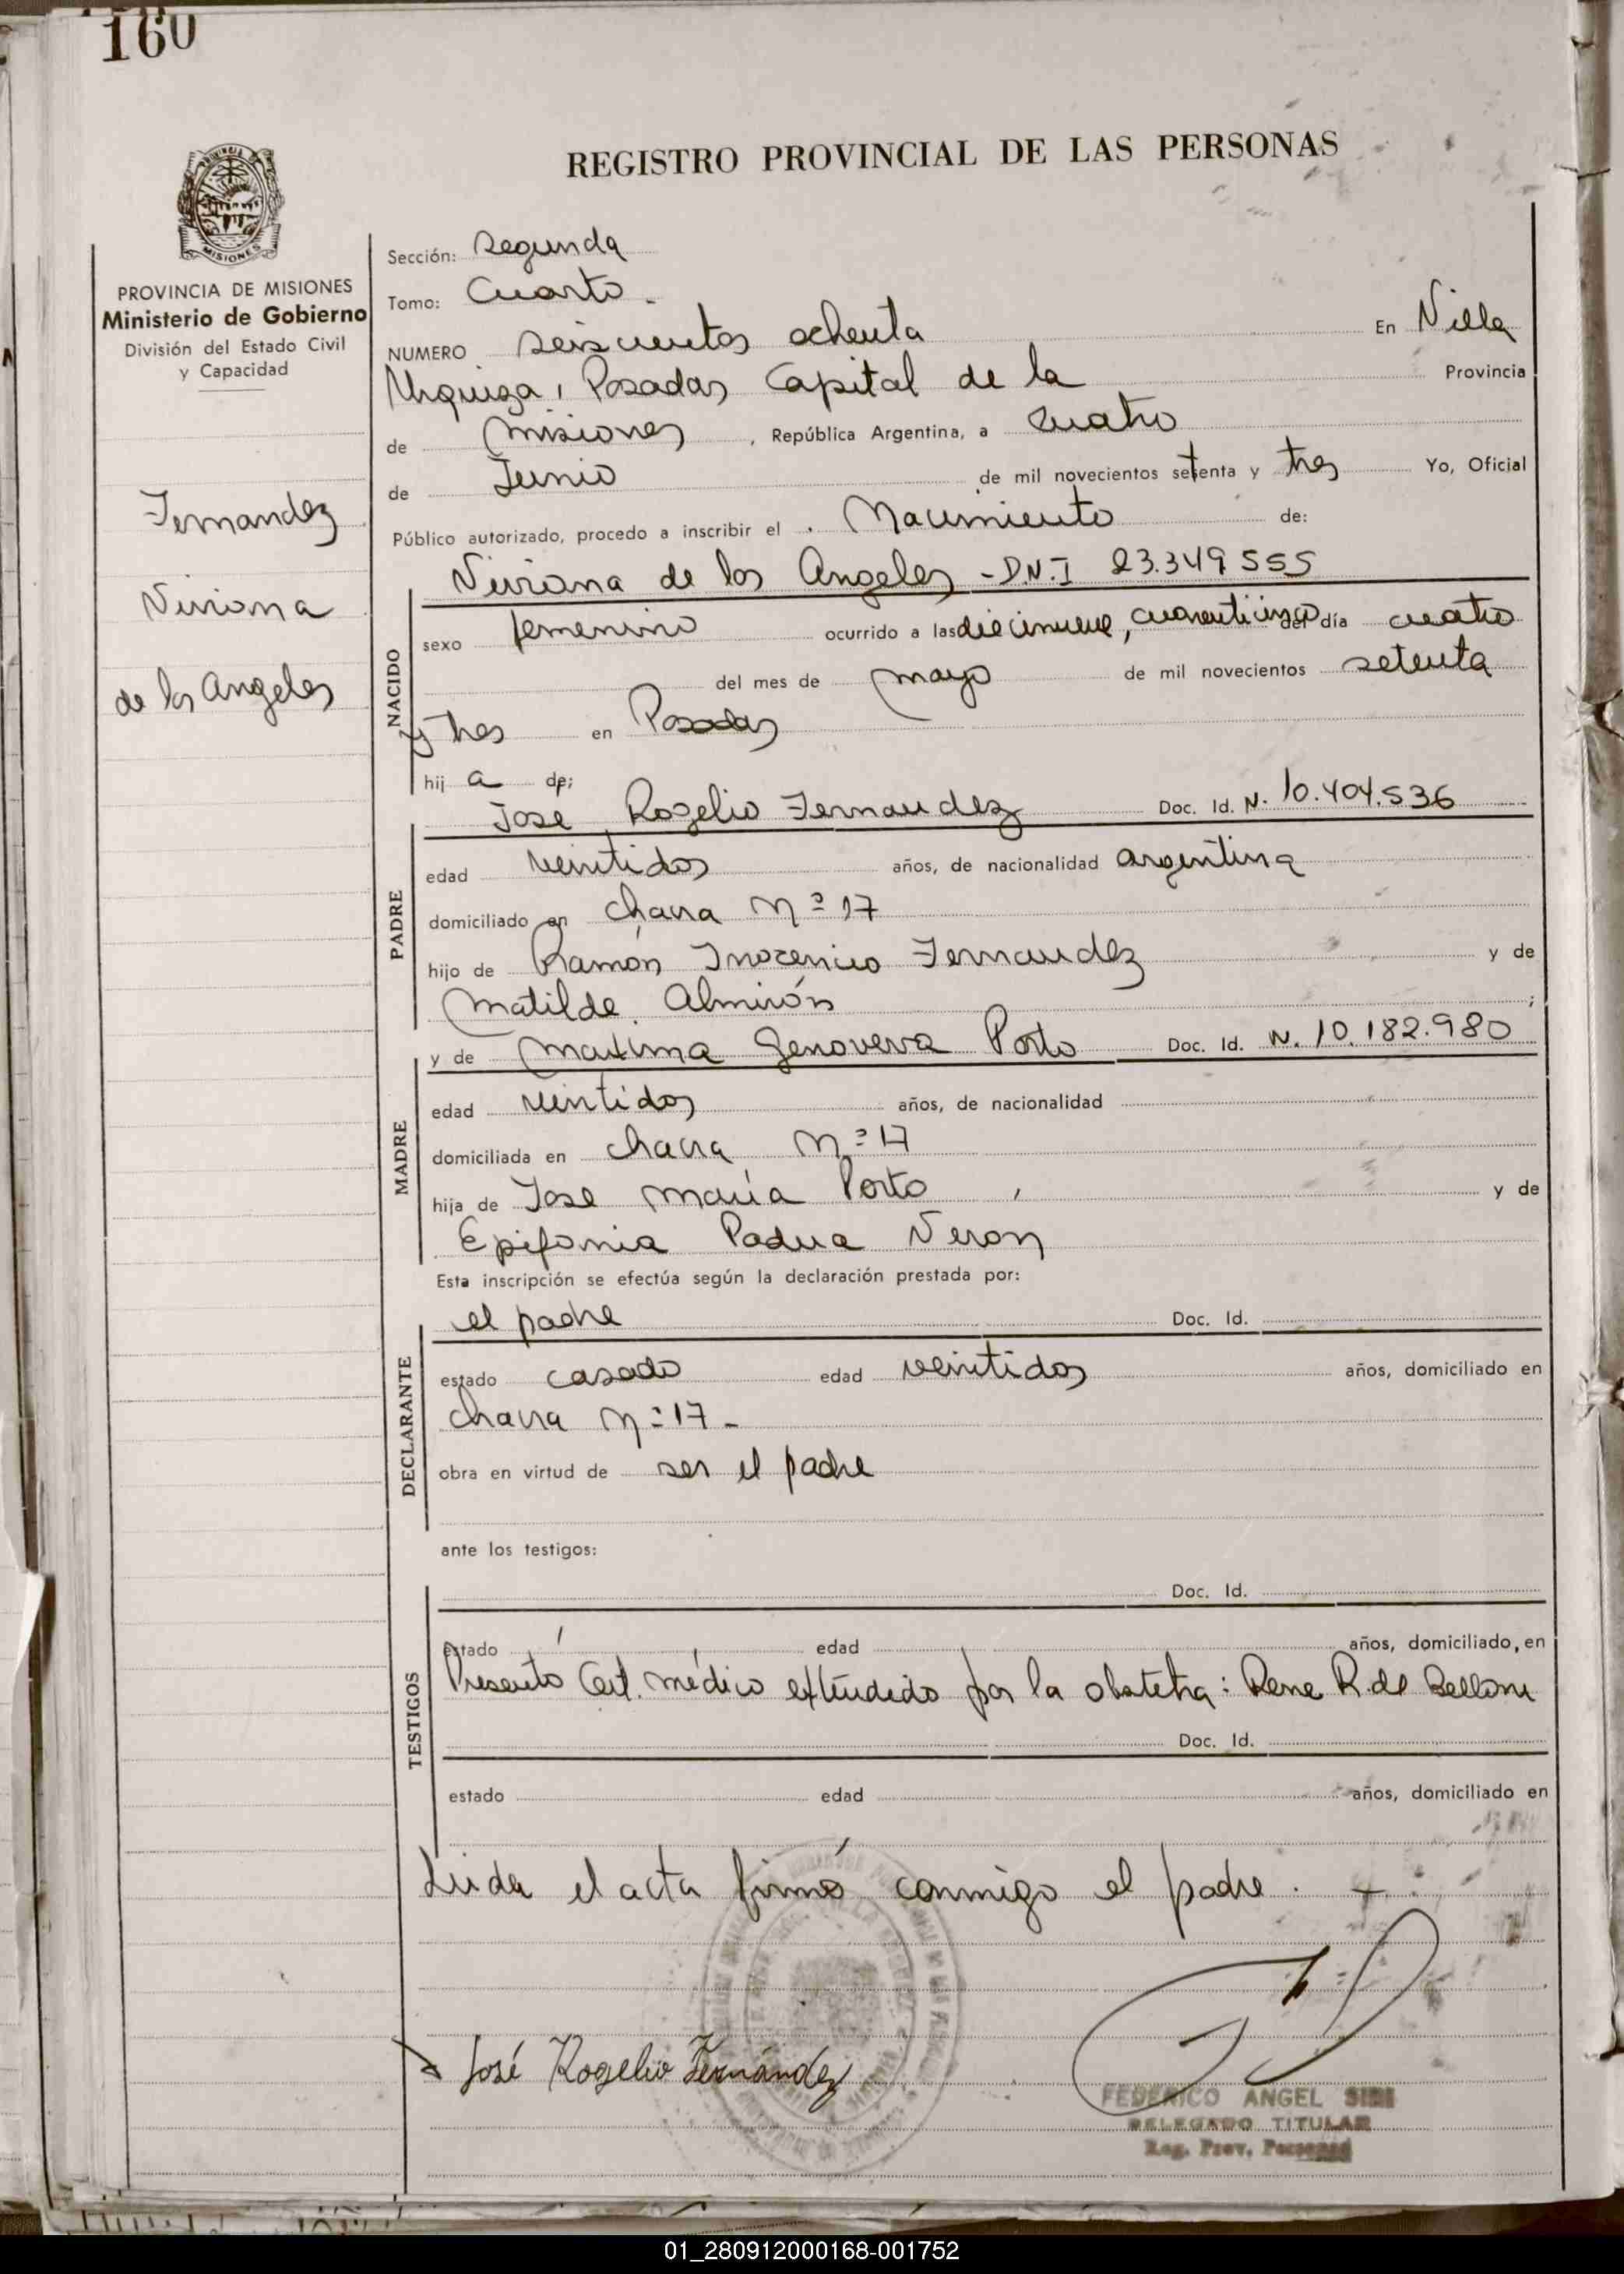 160
REGISTRO PROVINCIAL DE LAS PERSONAS
PROVINCIA DE MISIONES
Ministerio de Gobierno
División del Estado Civil
y Capacidad
Fernandez
Viviana
de los Angeles
Sección: Segunda
Tomo: Cuarto.
NUMERO seiscientos ochenta En Villa
Urquiza, Posadas Capital de la Provincia
de Misiones, República Argentina, a cuatro
de Junio de mil novecientos setenta y tres Yo, Oficial
Público autorizado, procedo a inscribir el Nacimiento de:
Viviana de los Angeles - D.N.I 23.349555
NACIDO
sexo femenino ocurrido a las diecinueve, cuarenticinco del día cuatro
del mes de mayo de mil novecientos setenta
y tres en Posadas
hij a de;
Jose Rogelio Fernandez Doc. Id. N. 10.404.536
PADRE
edad veintidos años, de nacionalidad argentina
domiciliado en chacra Nº 17
hijo de Ramón Inocencio Fernandez y de
Matilde Almirón;
y de Maxima Genoveva Porto Doc. Id. N. 10.182.980
MADRE
edad veintidos años, de nacionalidad
domiciliada en chacra Nº 17
hija de Jose María Porto, y de
Epifania Padua Veron
Esta inscripción se efectúa según la declaración prestada por:
el padre Doc. Id.
DECLARANTE
estado casado edad veintidos años, domiciliado en
chacra Nº 17 -
obra en virtud de ser el padre
ante los testigos:
Doc. Id.
TESTIGOS
estado edad años, domiciliado, en
Presento Cert. médico extendido por la obstetra: Rene R. de Belloni
Doc. Id.
estado edad años, domiciliado en
Leida el acta firmó conmigo el padre.
José Rogelio Fernández
FEDERICO ANGEL
DELEGADO TITULAR
Reg. Prov. Personas
01_280912000168-001752